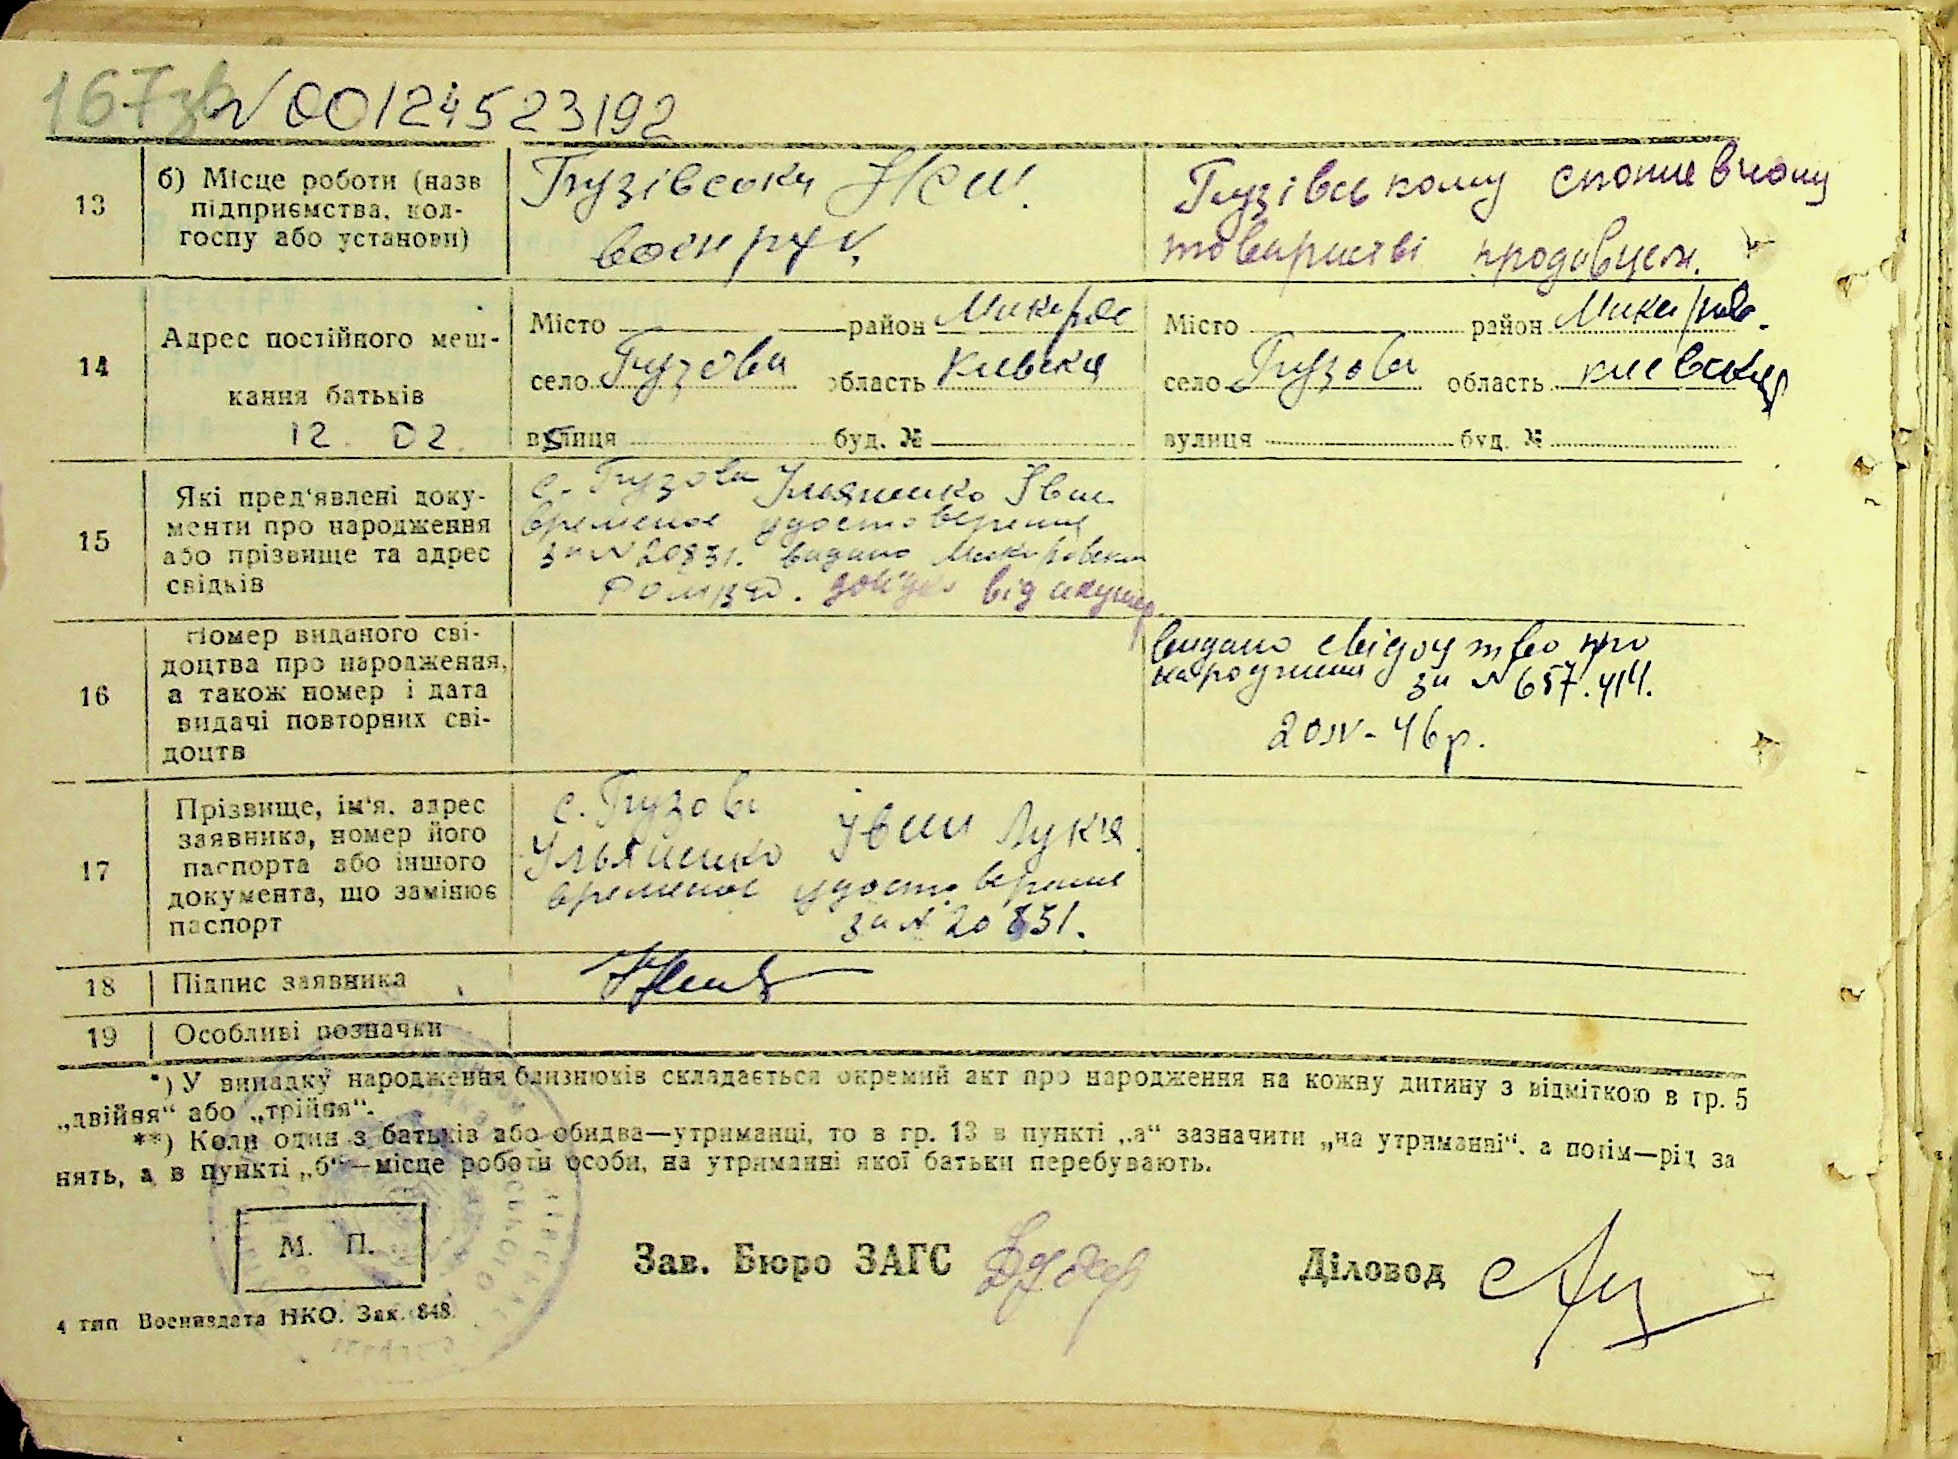 167зв
N 00124523192
13
б) Місце роботи (назв
підприємства, кол-
госпу або установи)
Грузівська НСШ.
воєнрук.
Грузівському споживчому
товаристві продавцем.
14
Адрес постійного меш-
кання батьків
12. 02.
Місто район Макарів
село Грузьва область Киевска
вулиця буд. №
5
Місто район Макарів.
село Грузьва область киевська
вулиця буд. №
15
Які пред'явлені доку-
менти про народження
або прізвище та адрес
свідків
с. Грузьва Ульяненко Іван
временое удостоверение
за N 20831. видано Макаровским
від акушер.
16
Номер виданого сві-
доцтва про народження,
а також номер і дата
видачі повторних сві-
доцтв
видано свідоцтво про
народження за N 657.414.
20/IV-46р.
17
Прізвище, ім'я, адрес
заявника, номер його
паспорта або іншого
документа, що замінює
паспорт
с. Грузьві
Ульяненко Іван Лук'я.
временое удостоверение
за N 20831.
18
Підпис заявника
19
Особливі розначки
*) У випадку народження близнюків складається окремий акт про народження на кожну дитину з відміткою в гр. 5
„двійня“ або „трійня“.
**) Коли один з батьків або обидва—утриманці, то в гр. 13 в пункті „а“ зазначити „на утриманні“. а потім—рід за
нять, а в пункті „б“—місце роботи особи, на утриманні якої батьки перебувають.
М. П.
Зав. Бюро ЗАГС
Діловод
4 тип Воениздата НКО. Зак. 848.